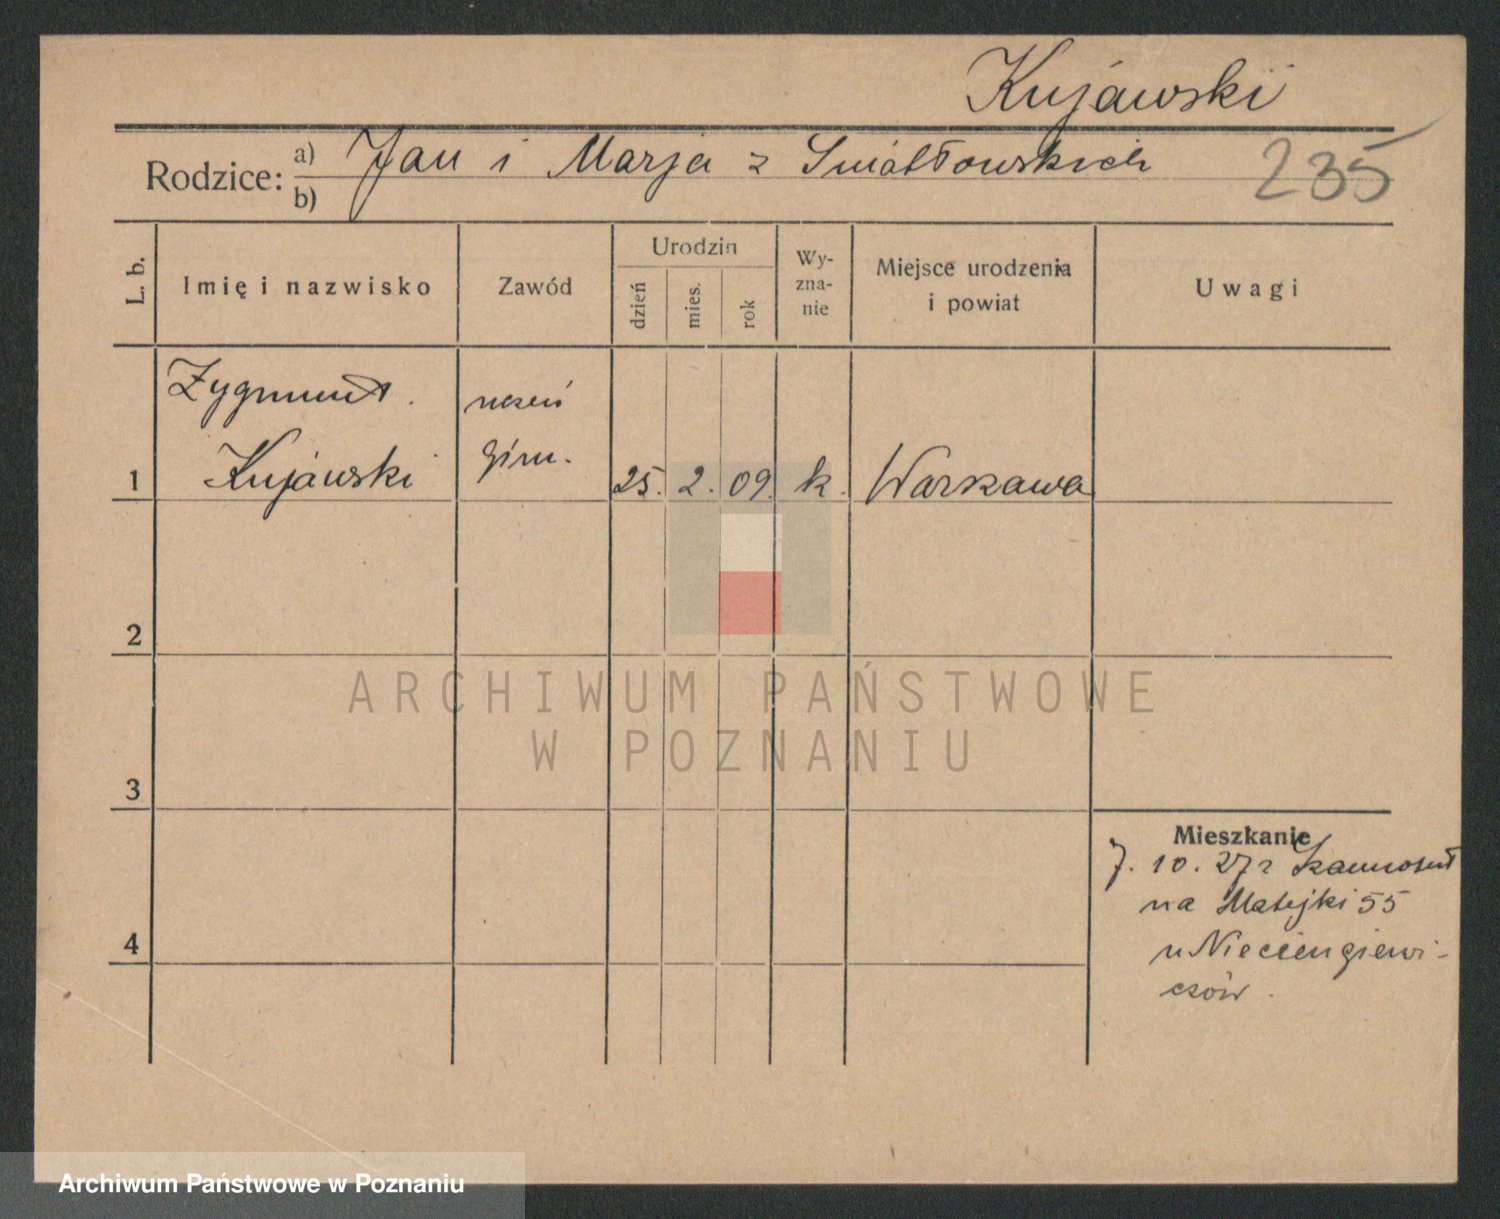 Kujawski
Rodzice: a) Jan i Marja z
b)
235
L. b.
Imię i nazwisko
Zawód
Urodzin
dzień
mies.
rok
Wy-
zna-
nie
Miejsce urodzenia
i powiat
Uwagi
Zygmunt
uczeń
1 Kujawski gimn. 25. 2. 09. k. Warszawa
2
3
4
Mieszkanie
7. 10. 27 r
na Matejki 55
u Nieciengiewi-
czów.
ARCHIWUM PAŃSTWOWE
W POZNANIU
Archiwum Państwowe w Poznaniu